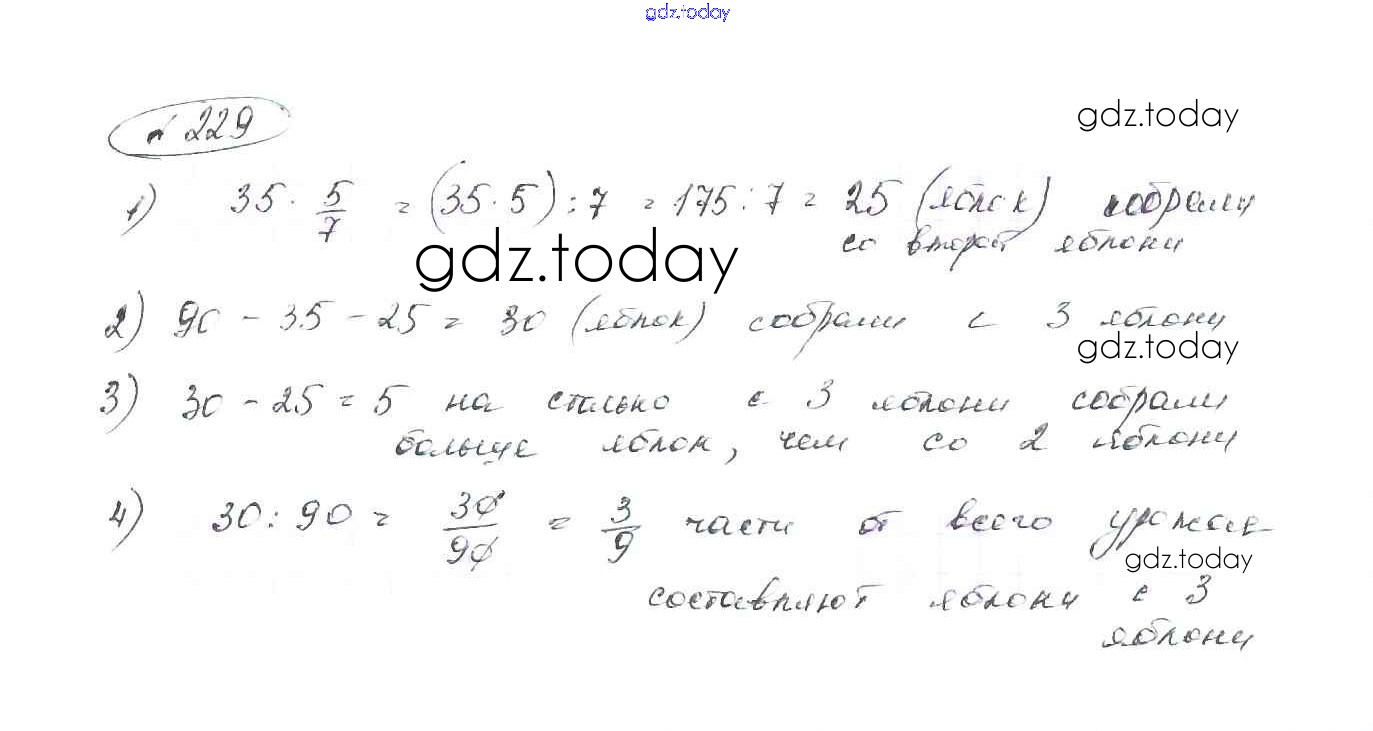 gdz.today
№ 229
gdz.today
1) 35 · 5/7 = (35 · 5) : 7 = 175 : 7 = 25 (яблок) собрали
со второй яблони
gdz.today
2) 90 - 35 - 25 = 30 (яблок) собрали с 3 яблони
gdz.today
3) 30 - 25 = 5 на столько с 3 яблони собрали
больше яблок, чем со 2 яблони
4) 30 : 90 = 30/90 = 3/9 части от всего урожая
gdz.today
составляют яблони с 3
яблони